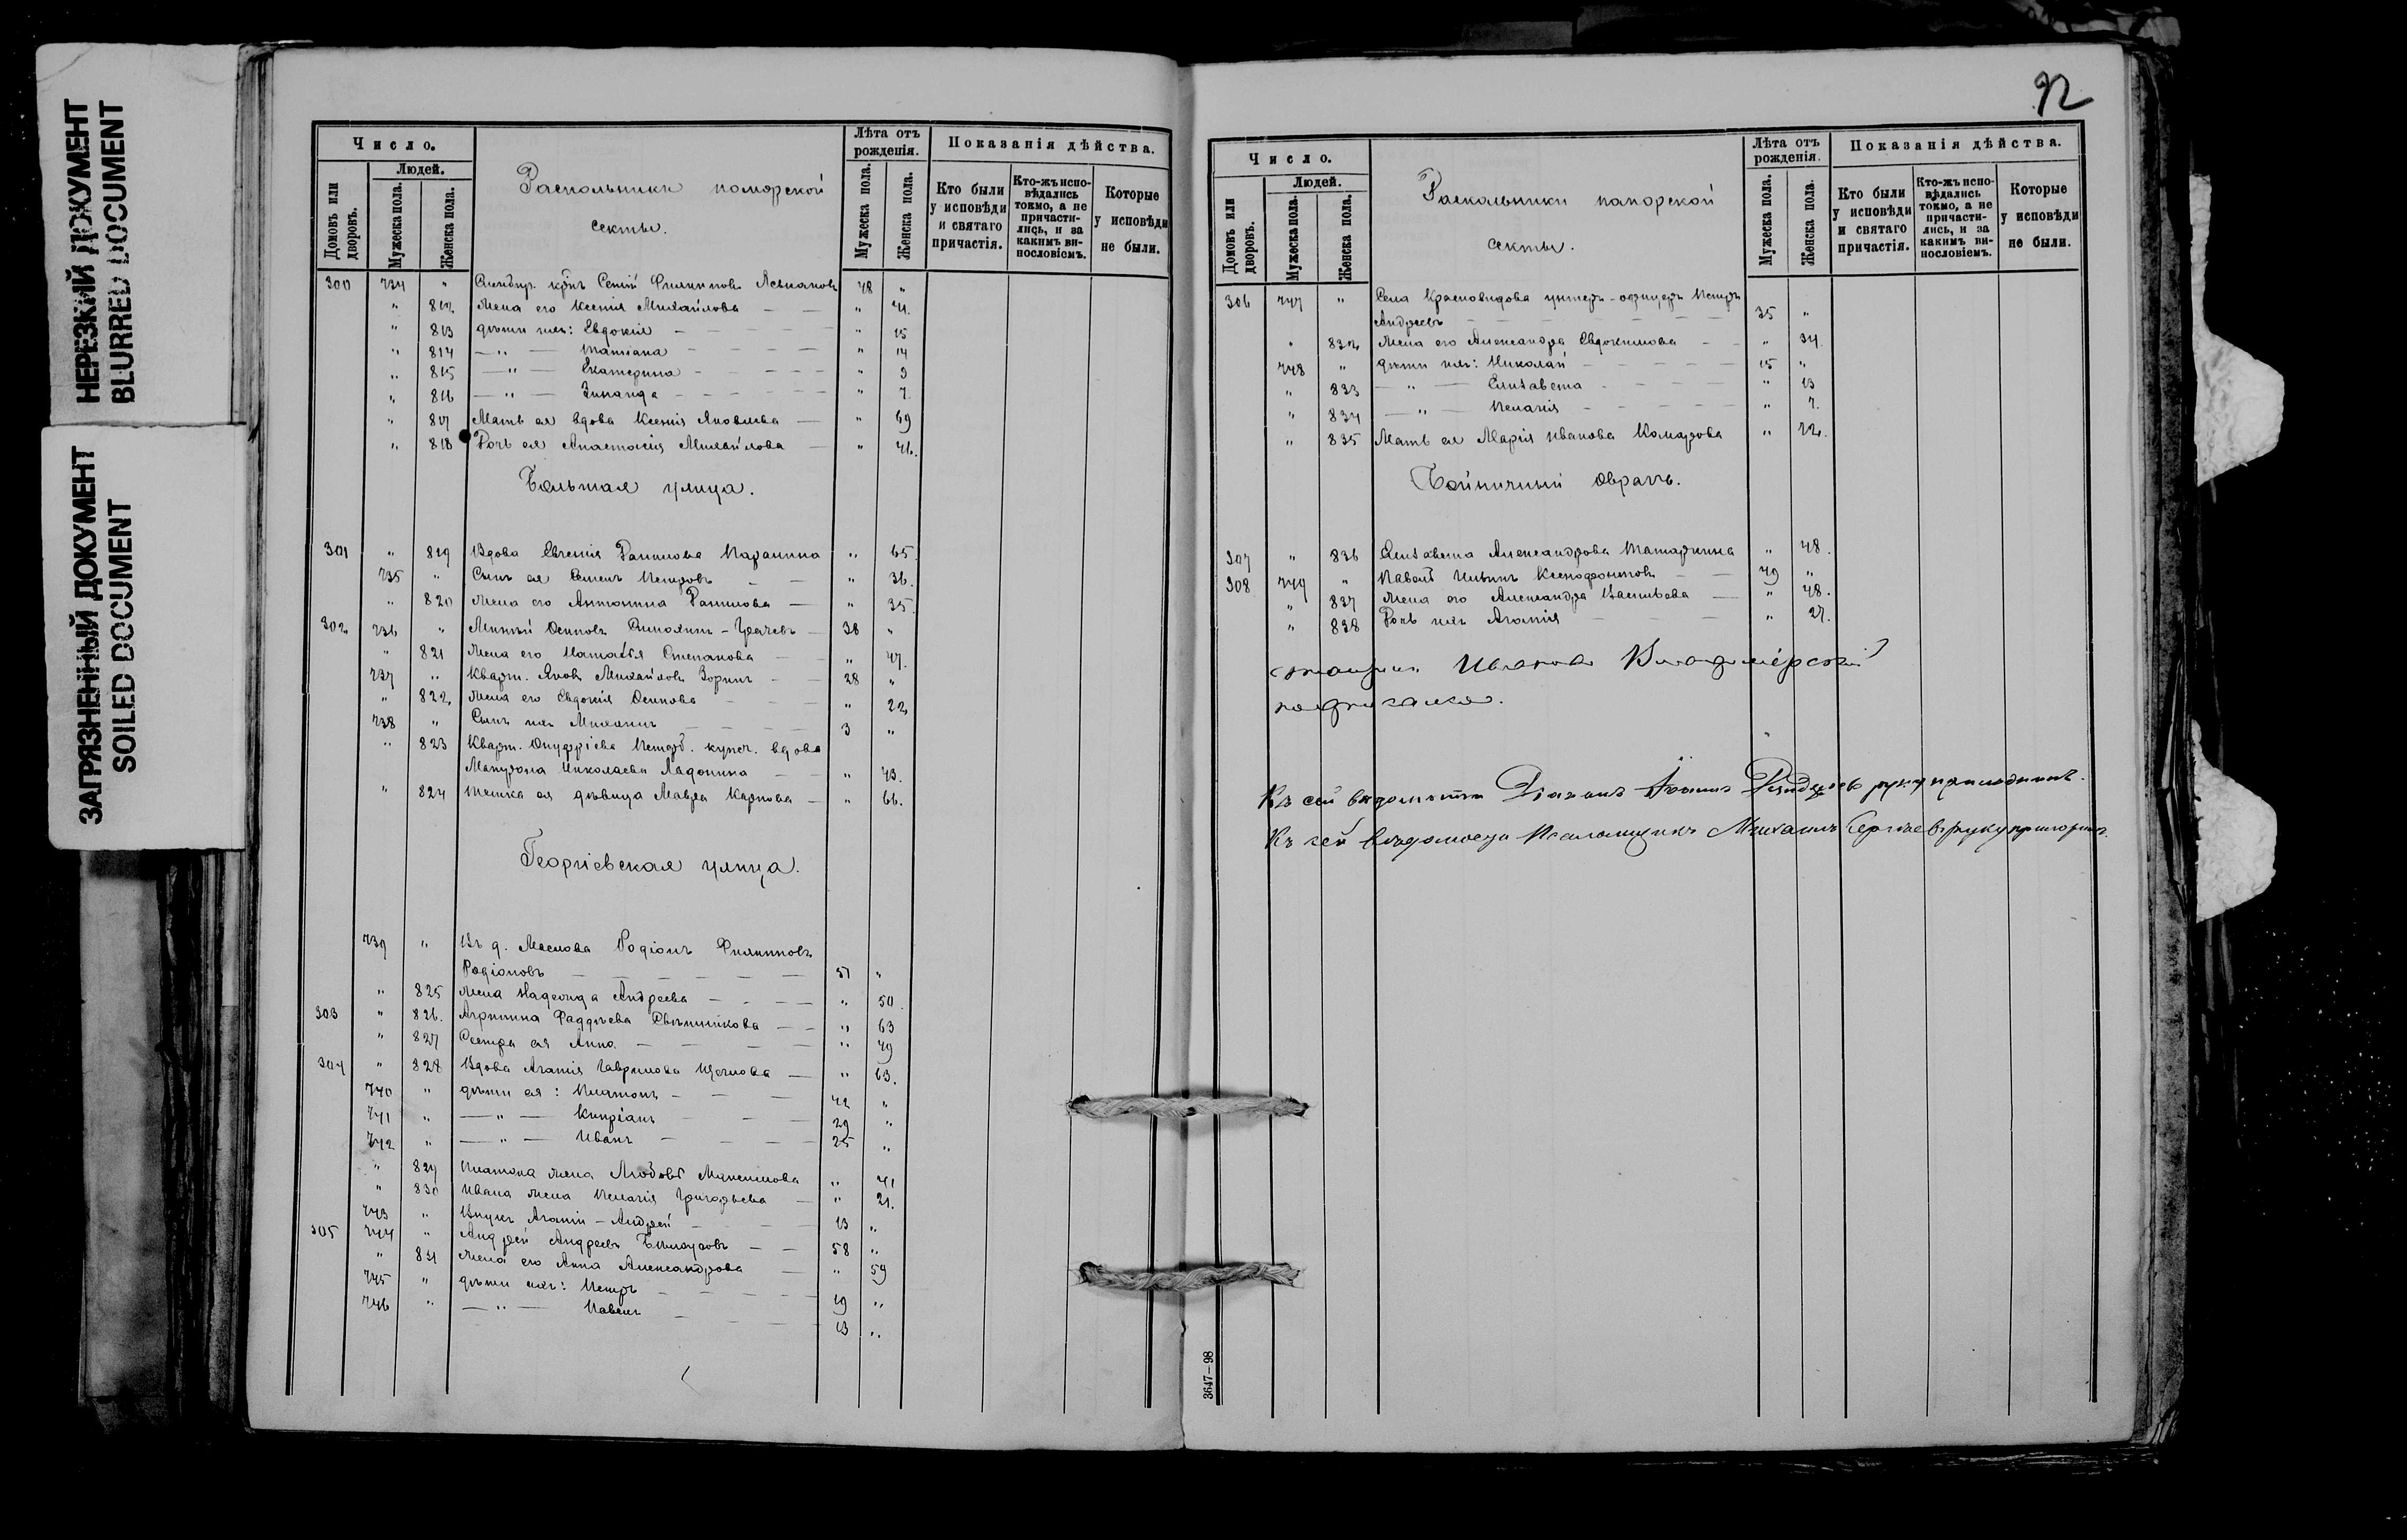 НЕРЕЗКИЙ ДОКУМЕНТ
BLURRED DOCUMENT
ЗАГРЯЗНЕННЫЙ ДОКУМЕНТ
SOILED DOCUMENT
Число.
Людей.
Домовъ или дворовъ.
Мужеска пола.
Женска пола.
Раскольники поморской
секты.
Лѣта отъ рожденія.
Мужеска пола.
Женска пола.
Показанія дѣйства.
Кто были у исповѣди и святаго причастія.
Кто-жъ исповѣдались токмо, а не причастились, и за какимъ винословіемъ.
Которые у исповѣди не были.
300 734 " Филиповъ 48 "
" 812 Жена его Ксенія Михайлова — — " 41.
" 813 дѣти ихъ: Евдокія — — " 15
" 814 — " — Татіана — — " 14
" 815 — " — Екатерина — — " 9
" 816 — " — Зинаида — — " 7.
" 817 Мать ея вдова Ксенія Яковлева — " 69
" 818 Дочь ея Анастасія Михайлова — " 46.
Большая улица.
301 " 819 Вдова Евгенія Данилова " 65.
735 " Сынъ ея Семенъ Петровъ — — " 36.
" 820 Жена его Антонина Данилова — " 35.
302 736 " Осиповъ — Грачевъ — 38 "
" 821 Жена его Наталья Степанова — — " 47.
737 " Кварт. Яковъ Михайловъ Зоринъ — — 28 "
" 822 Жена его Евдокія Осипова — " 22
738 " Сынъ ихъ Михаилъ — 3 "
" 823 Кварт. Онуфріева купеч. вдова
Николаева Ладонина — " 43.
" 824 Тетка ея дѣвица Мавра Карпова — " 66.
Георгіевская улица.
739 " Въ д. Маслова Родіонъ Филипповъ
Родіоновъ — — 51 "
" 825 Жена Надежда Андреева — — " 50.
303 " 826. Агрипина Фаддѣева Свѣшникова — — " 63
" 827 Сестра ея Анна — — " 49
304 " 828 Вдова Агафія Гаврилова Щеглова — " 63.
740 " дѣти ея: Платонъ — — 42 "
741 " — " — Кипріанъ — 29 "
742 " — " — Иванъ — — 25 "
" 829 Платона жена Любовь Максимова " 41
" 830 Ивана жена Пелагія Григорьева — " 21.
743 " Внукъ Агафіи — Андрей — 13 "
305 744 " Андрей Андреевъ Бѣлоусовъ — — 58 "
" 831 Жена его Анна Александрова — " 59
745 " дѣти ихъ: Петръ — — 19 "
746 " — " — Павелъ — 13 "
92
Число.
Людей.
Домовъ или дворовъ.
Мужеска пола.
Женска пола.
Раскольники поморской
секты.
Лѣта отъ рожденія.
Мужеска пола.
Женска пола.
Показанія дѣйства.
Кто были у исповѣди и святаго причастія.
Кто-жъ исповѣдались токмо, а не причастились, и за какимъ винословіемъ.
Которые у исповѣди не были.
306 747 " Села Красновидова унтеръ-офицеръ Петръ
Андреевъ — — 35 "
" 832 Жена его Александра Евдокимова — — " 34.
748 " дѣти ихъ: Николай — — 15 "
" 833 — " — Елизавета — — " 13
" 834 — " — Пелагія — — " 7.
" 835 Мать ея Марія Иванова Комарова " 72.
Бойничный оврагъ.
307 " 836 Елизавета Александрова Татаркина " 48.
308 749 " Павелъ Ильинъ Ксенофонтовъ — — 49 "
" 837 Жена его Александра Васильева — " 48.
" 838 Дочь ихъ Агафія — — " 27.
Владимірскій
Къ сей вѣдомости Діаконъ Іоаннъ руку приложилъ.
Къ сей вѣдомости Псаломщикъ Михаилъ Сергѣевъ руку приложилъ.
3647—98